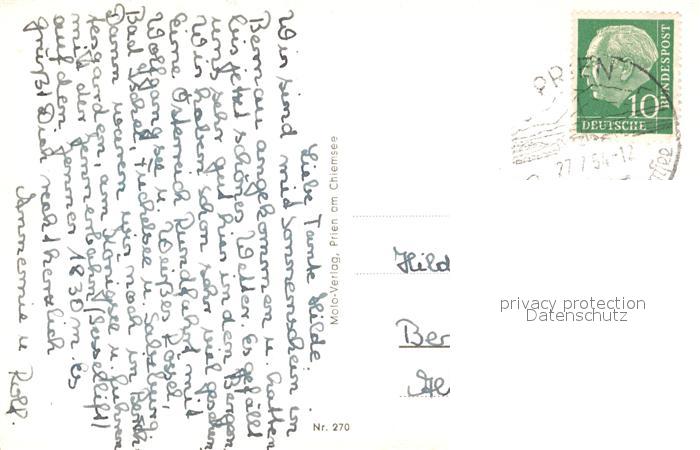 Liebe Tante Hilde!
Wir sind mit Sonnenschein in
Bernau angekommen u. hatten
bis jetzt schönes Wetter. Es gefällt
uns sehr gut hier in den Bergen.
Wir haben schon sehr viel gesehen.
Eine Österreich Rundfahrt mit
Wolfgangsee u. Weißes Rössel,
Bad Ischl, Fuschelsee u. Salzburg.
Dann waren wir noch in Berch-
tesgarden, am Königsee u. fuhren
mit der Jennerbahn (Sessellift)
auf dem Jenner 1830 m. Es
grüßt Dich recht herzlich
Annemie u. Rolf.
Molo-Verlag, Prien am Chiemsee
Nr. 270
DEUTSCHE BUNDESPOST
10
PRIEN
27.7.54-12
Hild
Ber
privacy protection
Datenschutz